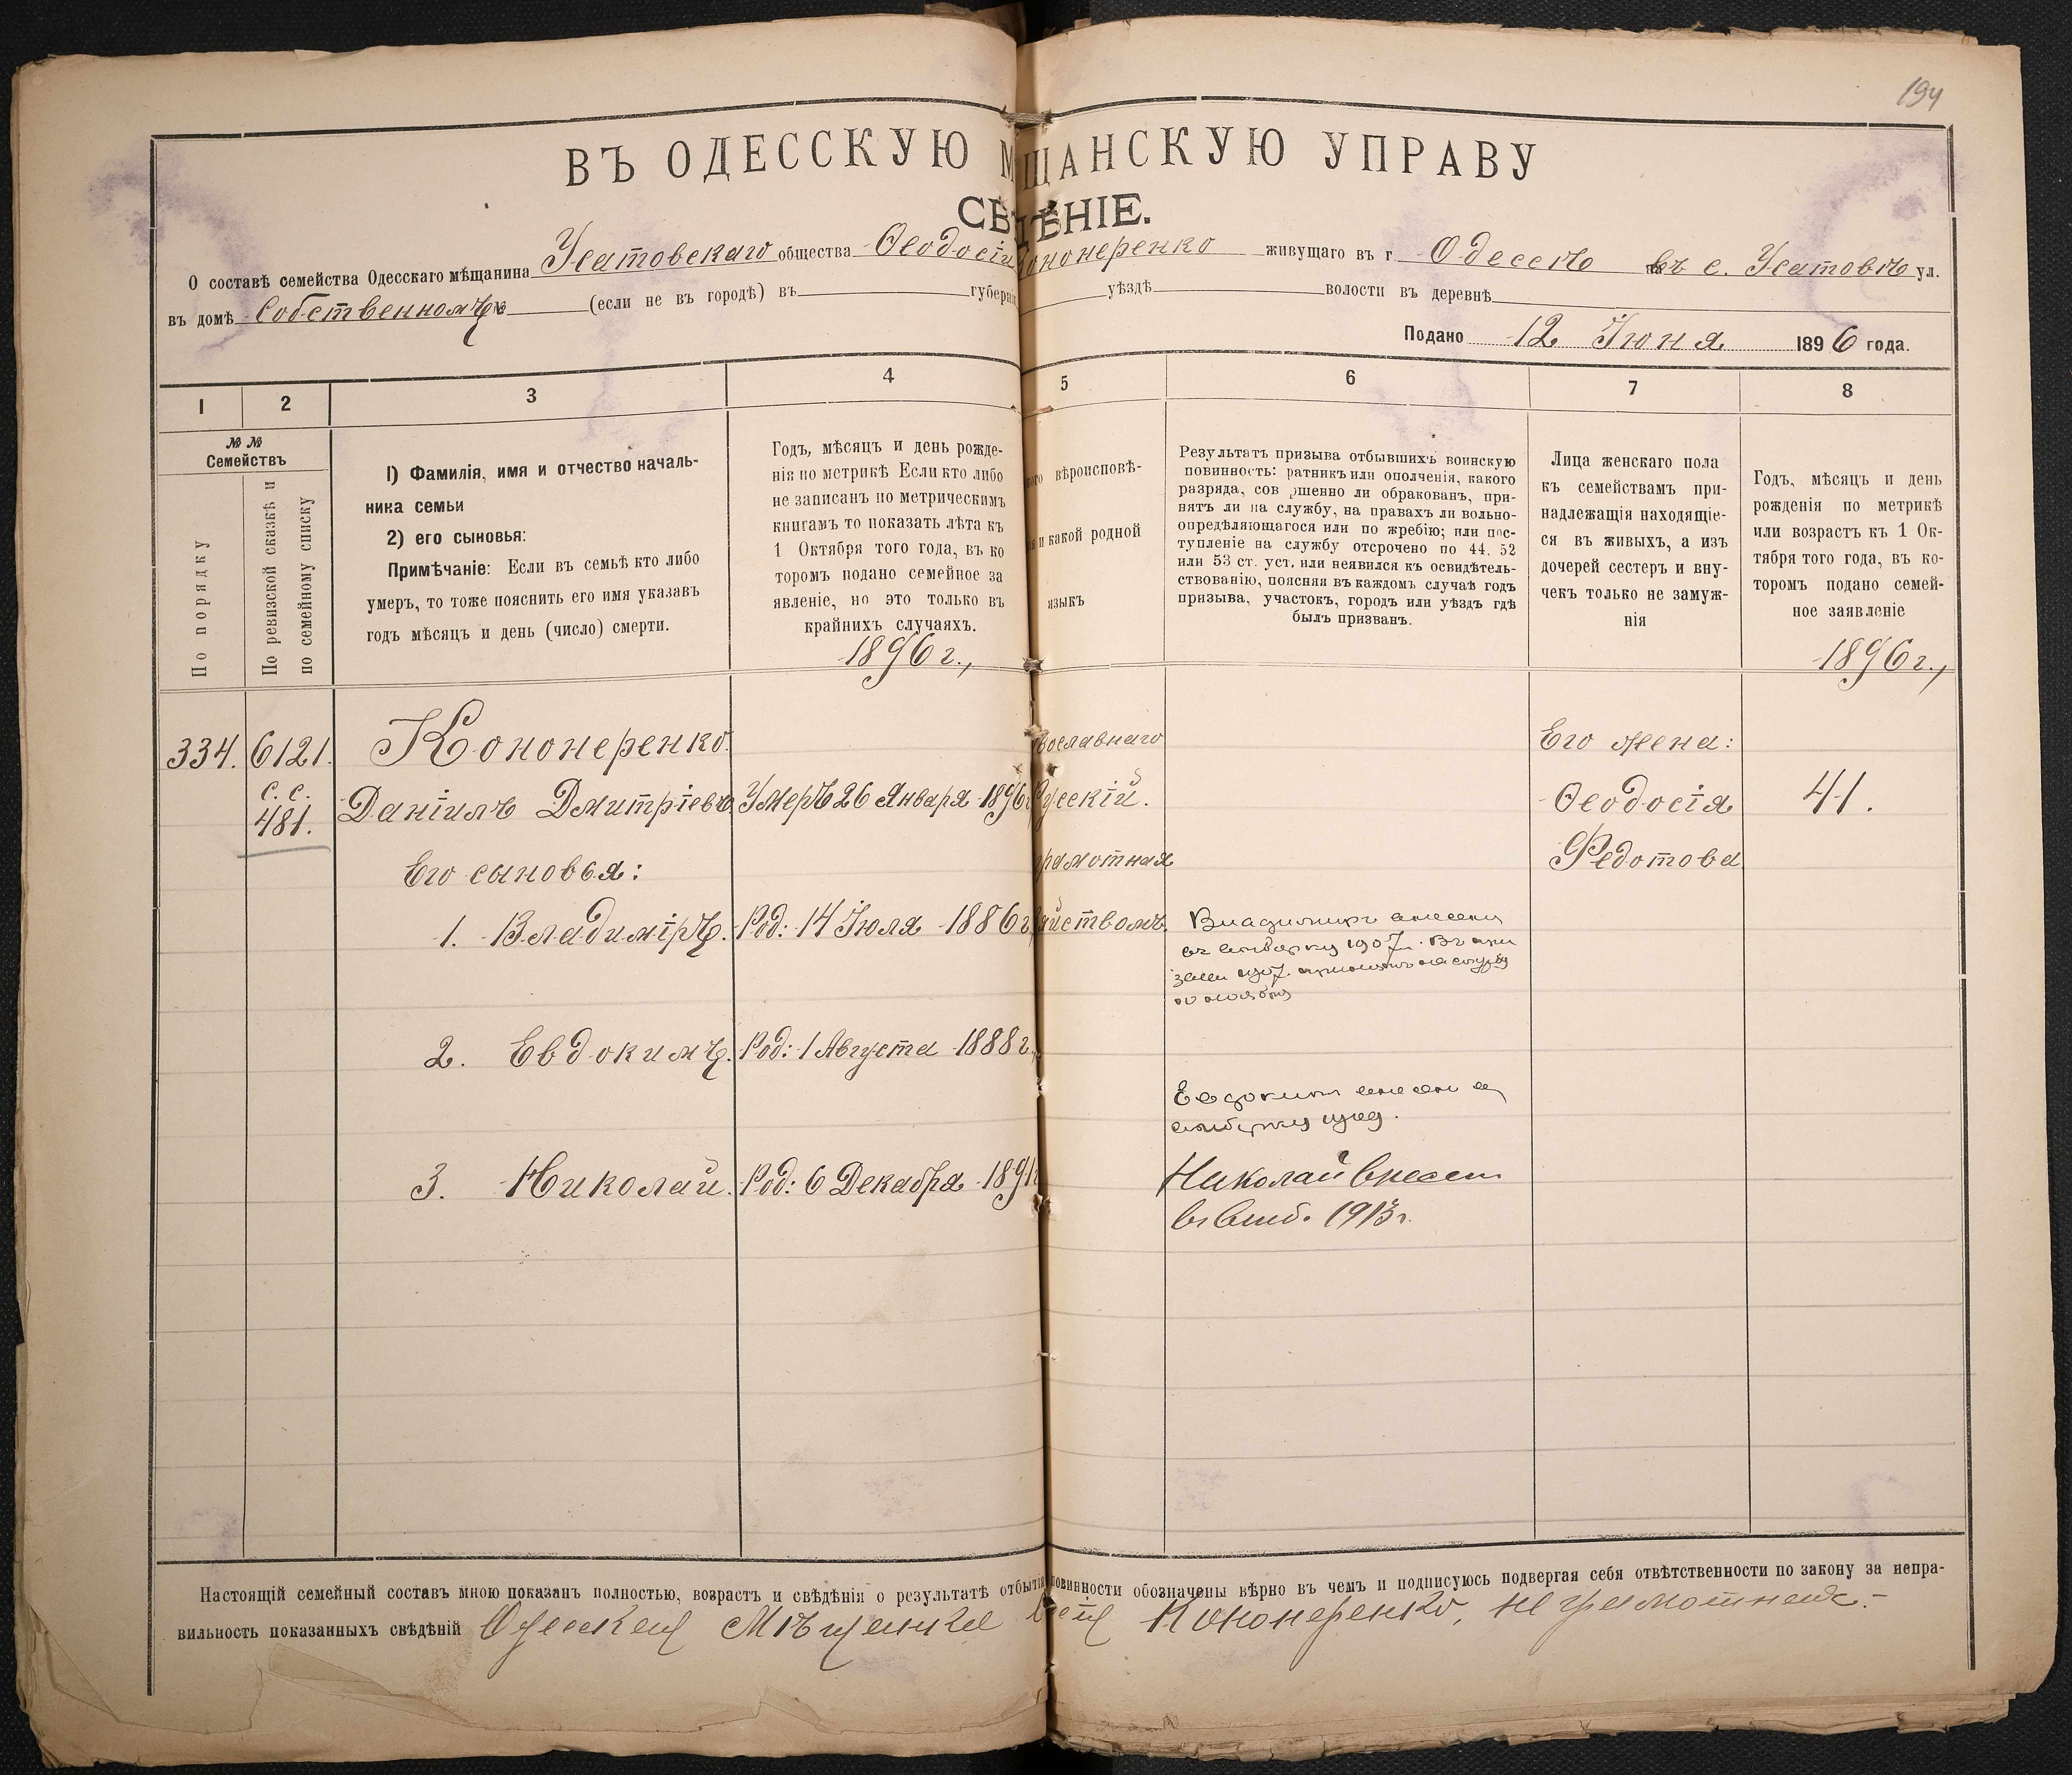 194
ВЪ ОДЕССКУЮ М ЩАНСКУЮ УПРАВУ
СВѢДѢНІЕ.
О составѣ семейства Одесскаго мѣщанина Усатовскаго общества Ѳеодосіи Кононеренко живущаго въ г. Одессѣ въ с. Усатовѣ ул.
въ домѣ Собственномъ (если не въ городѣ) въ губерн уѣздѣ волости въ деревнѣ
Подано 12 Іюня 1896 года.
1 2 3 4 5 6 7 8
№ №
Семействъ
По порядку
По ревизской сказкѣ и
по семейному списку
1) Фамилія, имя и отчество началь-
ника семьи
2) его сыновья:
Примѣчаніе: Если въ семьѣ кто либо
умеръ, то тоже пояснить его имя указавъ
годъ мѣсяцъ и день (число) смерти.
Годъ, мѣсяцъ и день рожде-
нія по метрикѣ Если кто либо
не записанъ по метрическимъ
книгамъ то показать лѣта къ
1 Октября того года, въ ко
торомъ подано семейное за
явленіе, но это только въ
крайнихъ случаяхъ.
1896 г.,
кого вѣроисповѣ-
и какой родной
языкъ
Результатъ призыва отбывшихъ воинскую
повинность: ратникъ или ополченія, какого
разряда, сов ршенно ли обракованъ, при-
нятъ ли на службу, на правахъ ли вольно-
опредѣляющагося или по жребію; или пос-
тупленіе на службу отсрочено по 44. 52
или 53 ст. уст. или неявился къ освидѣтель-
ствованію, поясняя въ каждомъ случаѣ годъ
призыва, участокъ, городъ или уѣздъ гдѣ
былъ призванъ.
Лица женскаго пола
къ семействамъ при-
надлежащія находящіе-
ся въ живыхъ, а изъ
дочерей сестеръ и вну-
чекъ только не замуж-
нія
Годъ, мѣсяцъ и день
рожденія по метрикѣ
или возрастъ къ 1 Ок-
тября того года, въ ко-
торомъ подано семей-
ное заявленіе
1896 г.,
334. 6121. Кононеренко. вославнаго Его жена:
с. с.
481. Даніилъ Дмитріевъ. Умеръ 26 Января 1896 Русскій. Ѳеодосія 41.
Его сыновья: грамотная Федотова
1. Владиміръ. Род: 14 Іюля 1886 г. яйствомъ. Владимиръ внесенъ
въ выборку 1907 г. Въ при
зывъ 1907 принятъ на службу
2. Евдокимъ. Род: 1 Августа 1888 г.
Евдокимъ внесенъ въ
выборку 1909.
3. Николай. Род: 6 Декабря 1891 г. Николай внесен
въ выб. 1913 г.
Настоящій семейный составъ мною показанъ полностью, возрастъ и свѣдѣнія о результатѣ отбытія повинности обозначены вѣрно въ чемъ и подписуюсь подвергая себя отвѣтственности по закону за непра-
вильность показанныхъ свѣдѣній Одесская Мѣщанка Кононеренко, неграмотная.